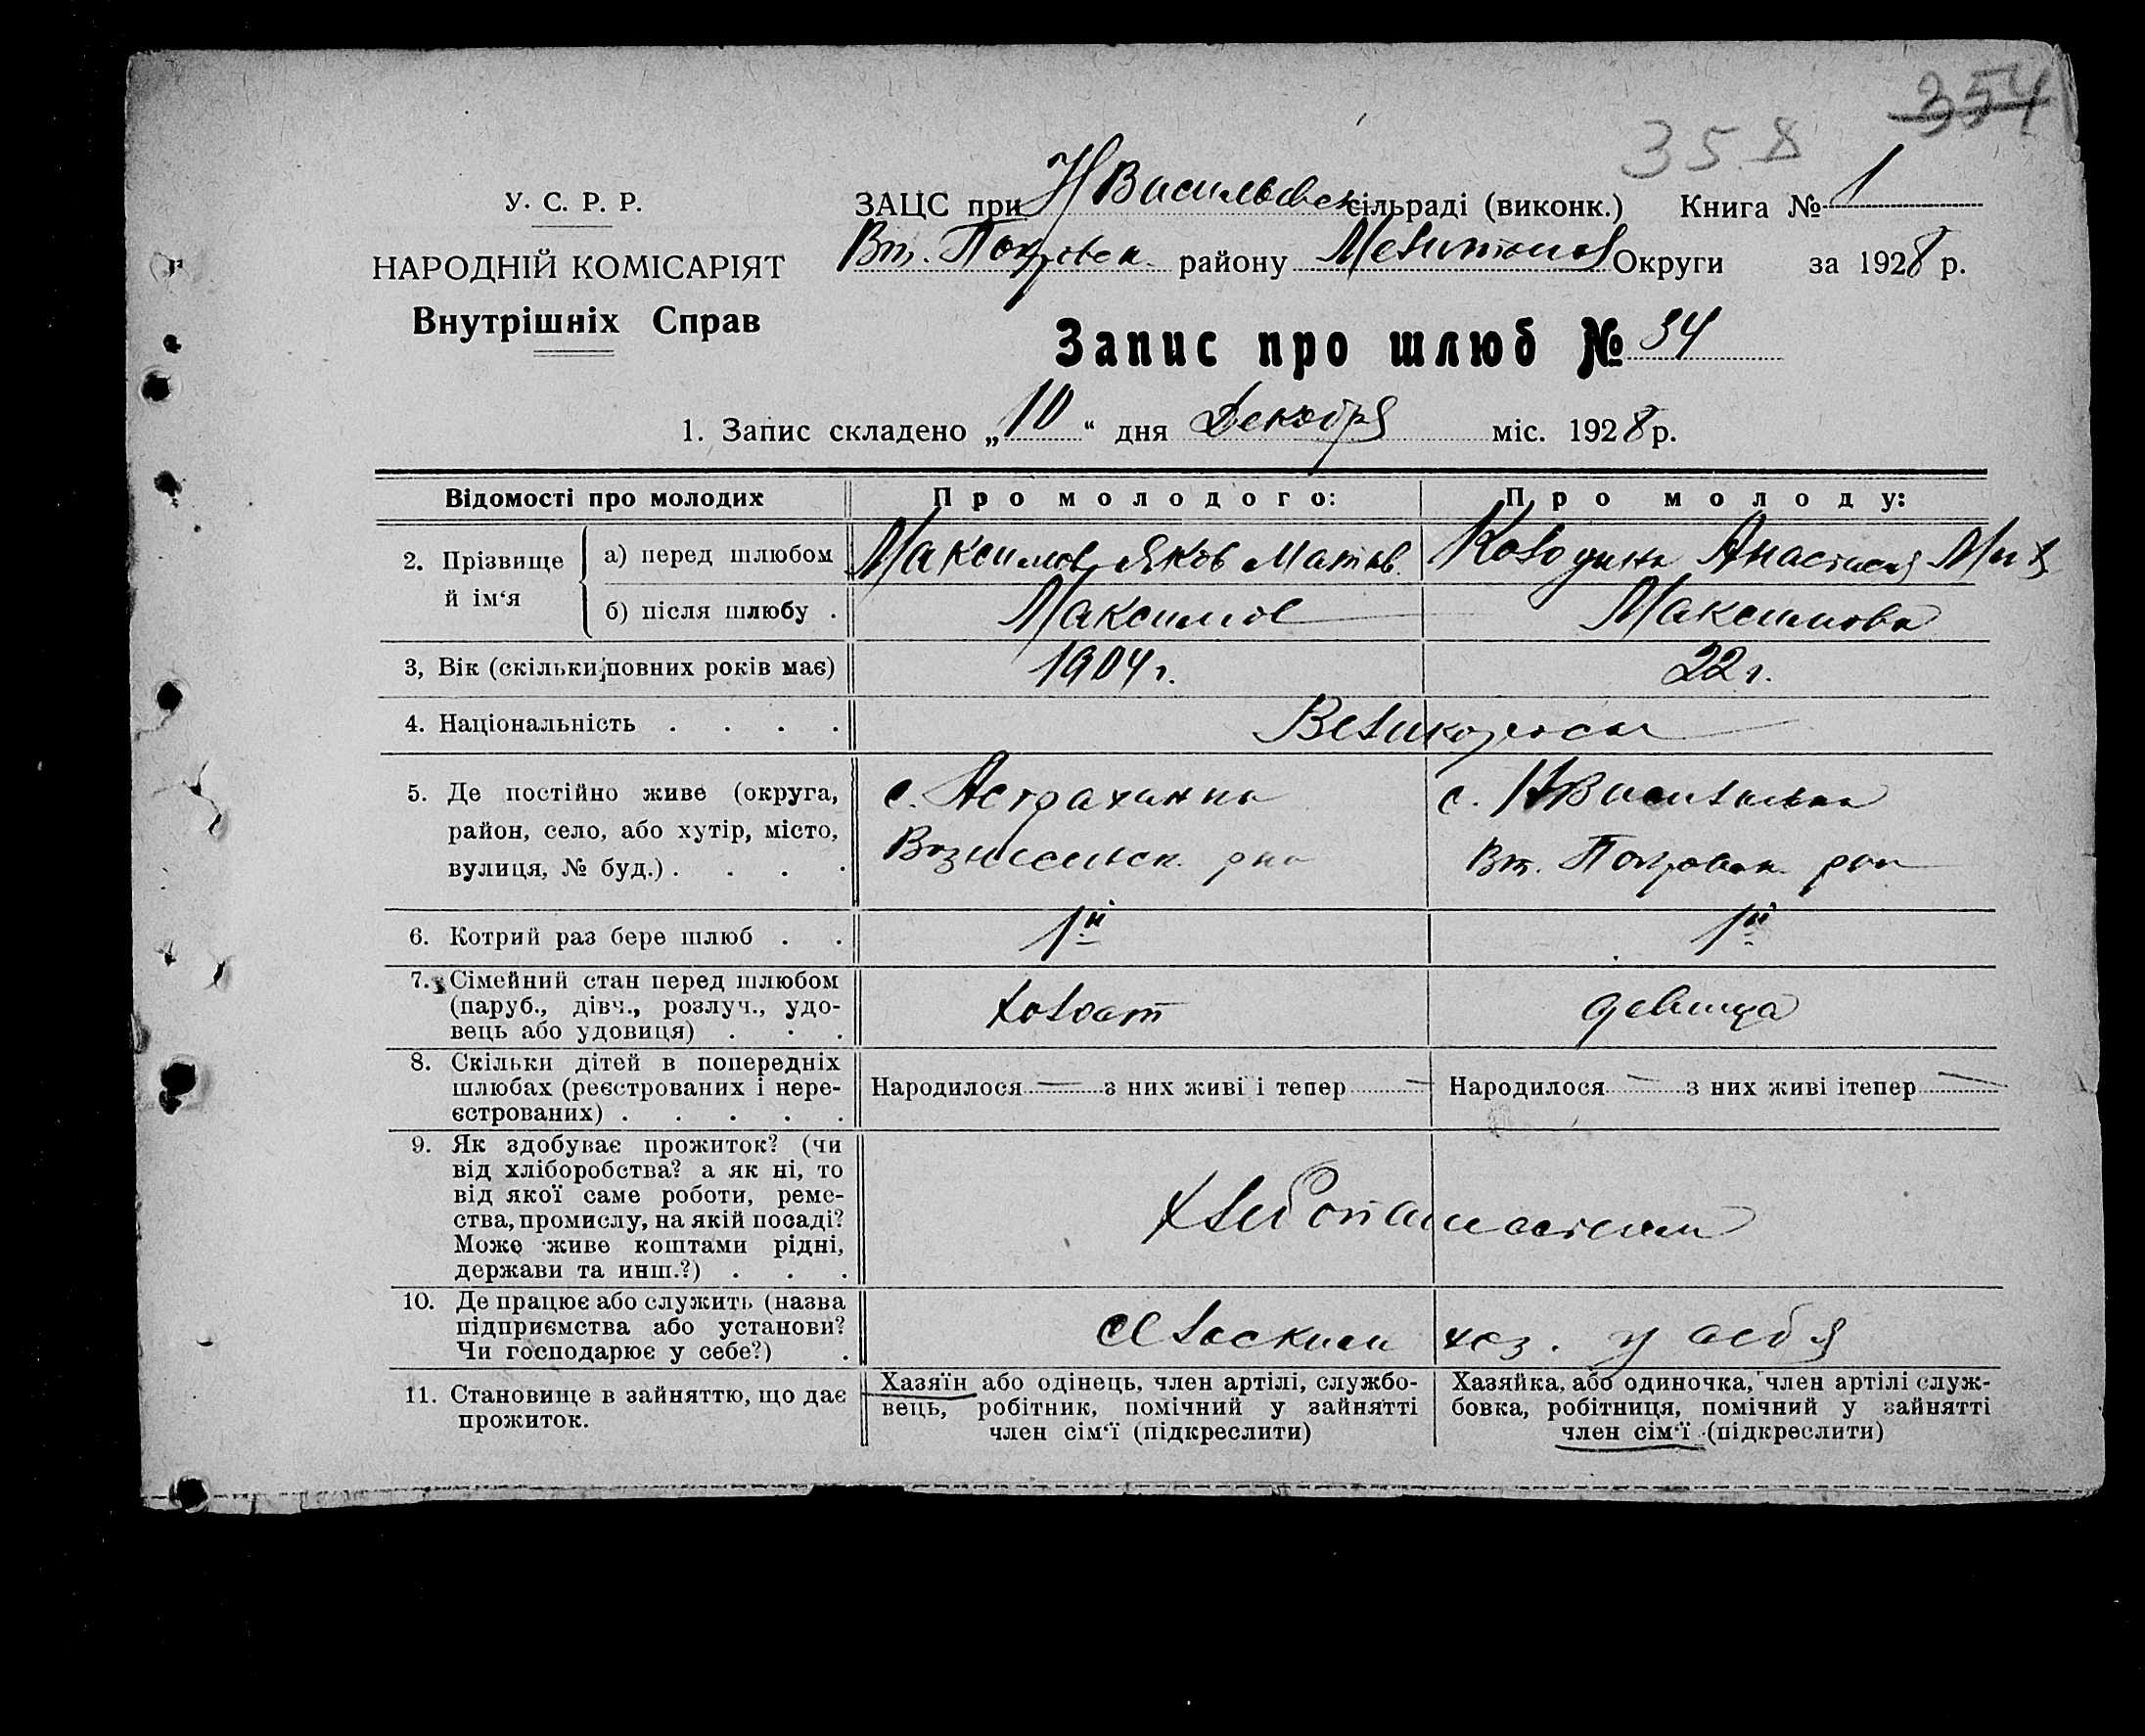 354
358
У. С. Р. Р.
НАРОДНІЙ КОМІСАРІЯТ
Внутрішніх Справ
ЗАЦС при Н Васильевск сільраді (виконк.) Книга № 1
Вт. Покровск. району Мелитопол Округи за 1928 р.
Запис про шлюб № 34
1. Запис складено „10“ дня Декабря міс. 1928 р.
Відомості про молодих
Про молодого:
Про молоду:
2. Прізвище й ім‘я
а) перед шлюбом
Максимов Яков Матв.
Колодина Анастасия Мих
б) після шлюбу .
Максимов
Максимова
3, Вік (скільки повних років має)
1904 г.
22 г.
4. Національність . . . .
Великороссы
5. Де постійно живе (округа,
район, село, або хутір, місто,
вулиця, № буд.) . . . .
с. Астраханка
Вознесенск. рна
с. НВасильевка
Вт. Покровск рна
6. Котрий раз бере шлюб . .
1й
1й
7. Сімейний стан перед шлюбом
(паруб., дівч., розлуч., удо-
вець або удовиця) . . .
холост
девица
8. Скільки дітей в попередніх
шлюбах (реєстрованих і нере-
єстрованих) . . . . .
Народилося — з них живі і тепер —
Народилося — з них живі ітепер —
9. Як здобуває прожиток? (чи
від хліборобства? а як ні, то
від якої саме роботи, реме-
ства, промислу, на якій посаді?
Може живе коштами рідні,
держави та инш.?) . . .
хлебопашеством
10. Де працює або служить (назва
підприємства або установи?
Чи господарює у себе?) .
сельским хоз. у себя
11. Становище в зайняттю, що дає
прожиток.
Хазяїн або одінець, член артілі, службо-
вець, робітник, помічний у зайнятті
член сім‘ї (підкреслити)
Хазяйка, або одиночка, член артілі служ-
бовка, робітниця, помічний у зайнятті
член сім‘ї (підкреслити)